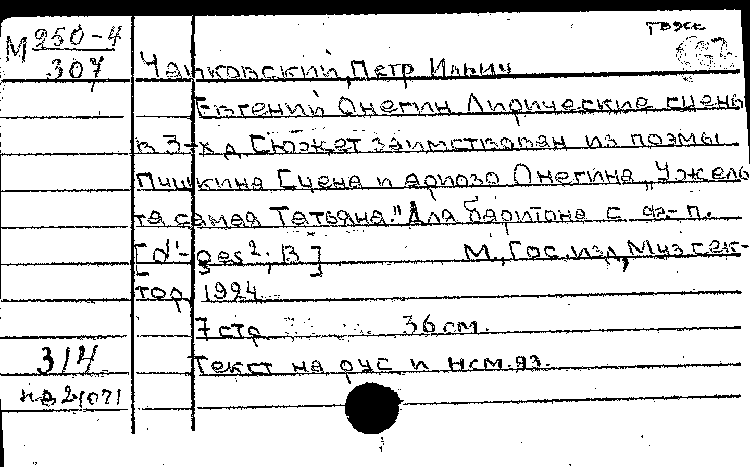 М 250-4
307
Чайковский, Петр Ильич
Евгений Онегин Лирические сцены
в 3-х д. Сюжет заимствован из поэмы
Пушкина Сцена и ариозо Онегина „Ужель
та самая Татьяна." Для баритона с ф-п.
[d'-ges²; B] М., Гос. изд, Муз сек-
тор, 1924
7 стр 36 см.
314 Текст на рус и нем. яз.